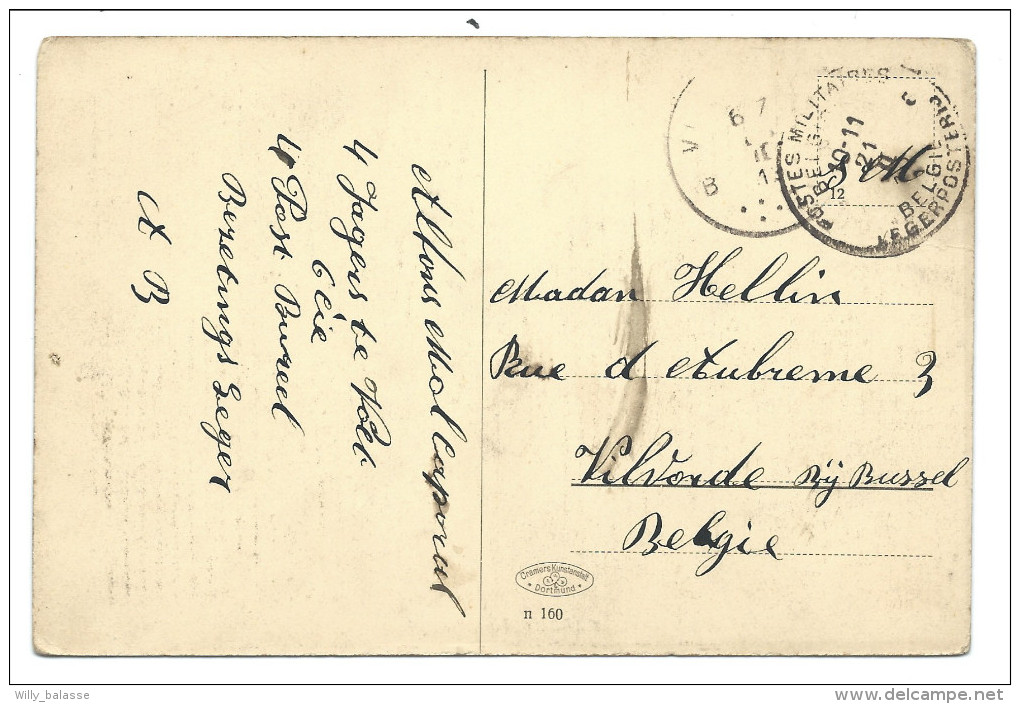 Alfons Mol Caporal
4 Jagers te Voet
6 cie
4 Post Bureel
Bezetings Leger
A B
B V
6-7
POSTES MILITAIRES
BELG
10-11
21
BELGIE
LEGERPOSTERIJ
S M
12
Madan Hellin
Rue d Aubreme 3
Vilvorde Bij Bussel
Belgie
Cramers Kunstanstalt
Dortmund
n 160
Willy_balasse
www.delcampe.net